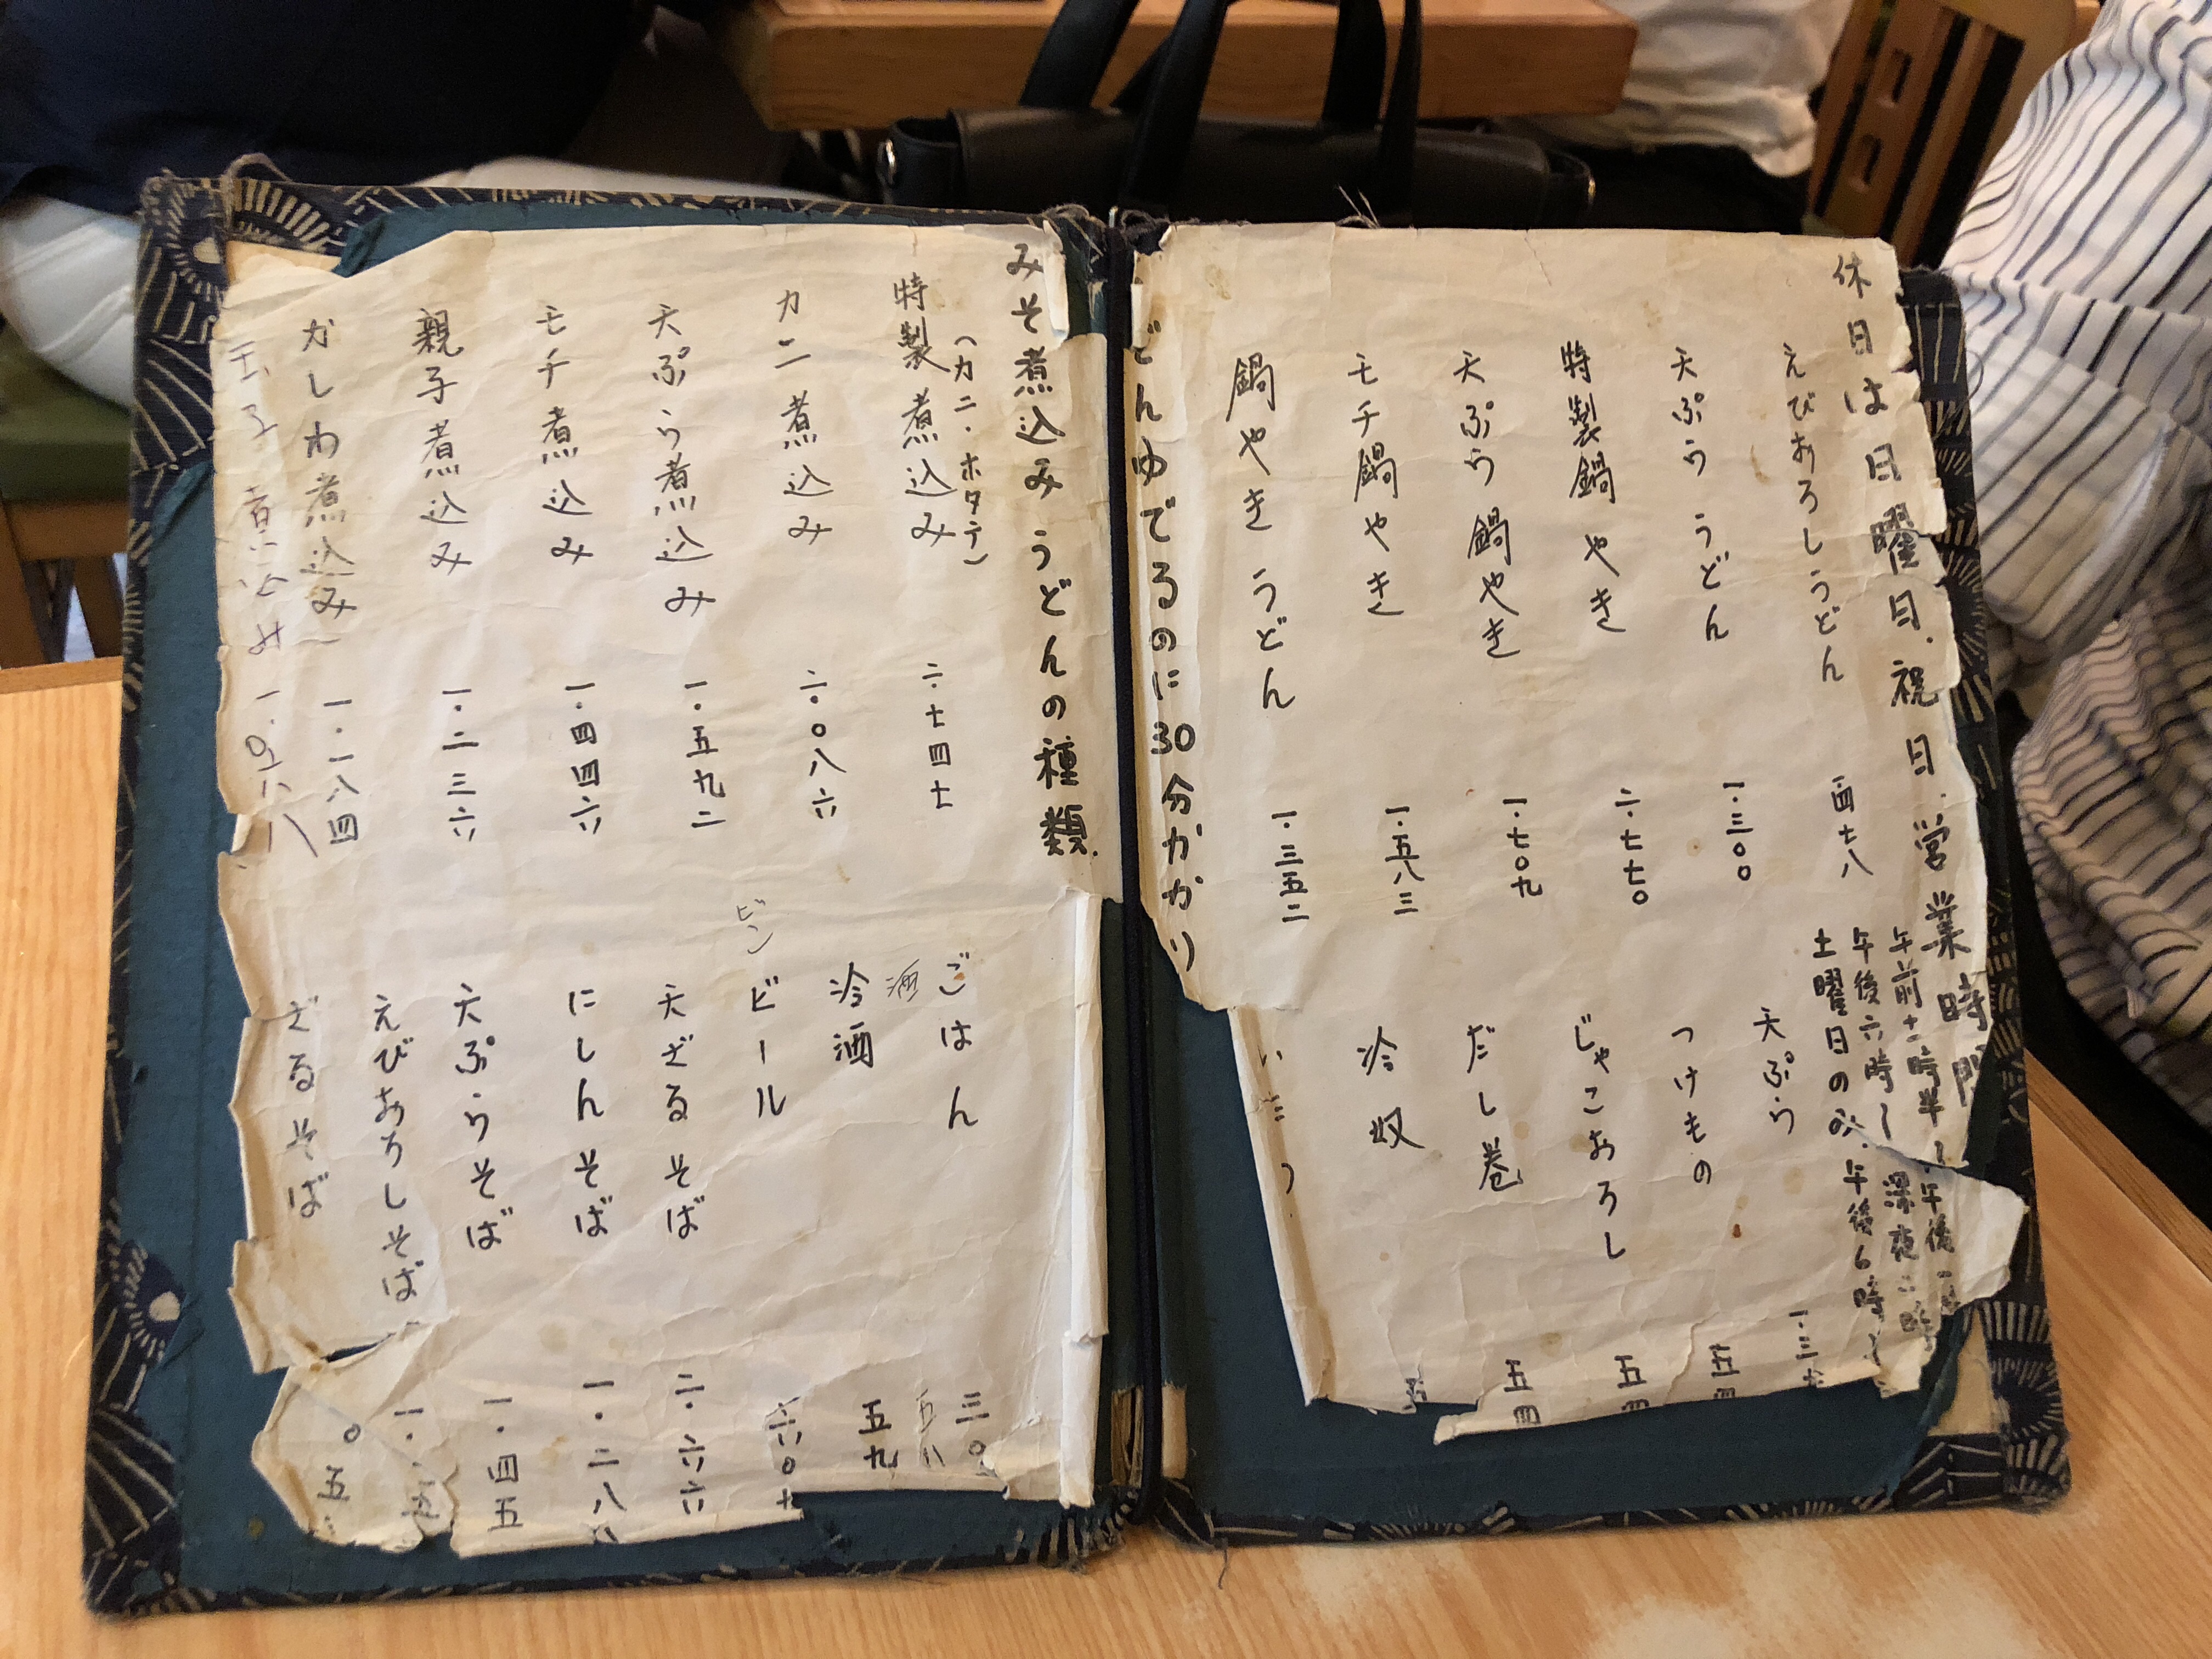 休日は日曜日.祝日.営業時間
午前十一時半〜午後一時
午後六時〜深夜二時
土曜日のみ.午後6時
えびおろしうどん 一四七八
天ぷらうどん 一.三〇〇
特製鍋やき 二.七七〇
天ぷら鍋やき 一.七〇九
モチ鍋やき 一.五八三
鍋やきうどん 一.三五二
どんゆでるのに30分かかり
天ぷら 一.三
つけもの 五四
じゃこおろし 五四
だし巻 五四
冷奴 五
みそ煮込みうどんの種類.
(カニ.ホタテ)
特製煮込み 二.七四七
カニ煮込み 二.〇八六
天ぷら煮込み 一.五九二
モチ煮込み 一.四四六
親子煮込み 一.二三六
かしわ煮込み 一.一八四
玉子煮込み 一.〇六八
ごはん 三〇
酒 五八
冷酒 五九
ビンビール 六〇
天ざるそば 二.六六
にしんそば 一.二八
天ぷらそば 一.四五
えびおろしそば 一.五
ざるそば 〇五